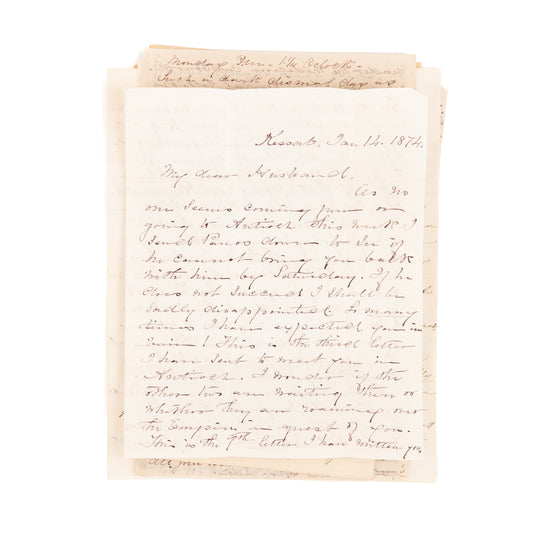 Monday P.M. 1/4 Oclock -
Such a dark dismal day as
Kessab, Jan 14. 1874.
My dear Husband.
As no
one seems coming from or
going to Antioch this week I
send Panos down to see if
he cannot bring you back
with him by Saturday. If he
does not succeed I shall be
sadly disappointed. So many
times I have expected you in
vain! This is the third letter
I have sent to meet you in
Antioch. I wonder if the
other two are waiting there or
whether they are roaming over
the Empire in quest of you.
This is the 9th letter I have written you